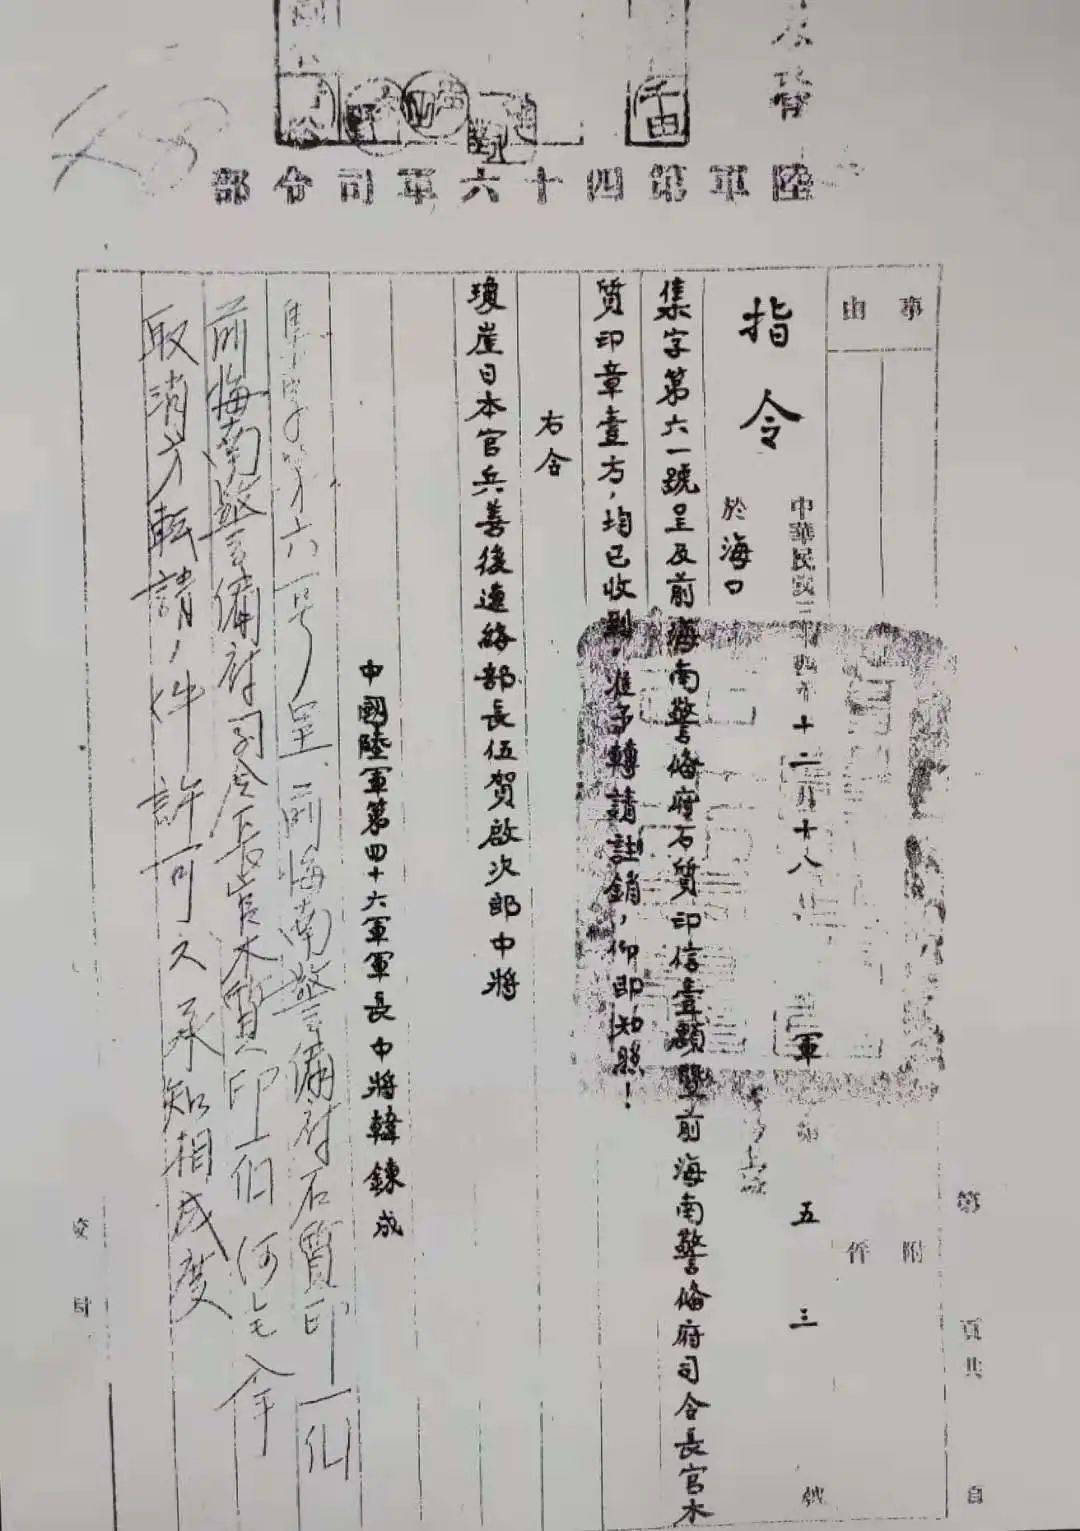 陸軍第四十六軍司令部
事由
附件
第 頁共
指令
中華民國三十四年十二月十八日
軍 第 五 三 號
於海口
集字第六一號呈及前海南警備府石質印信壹顆暨前海南警備府司令長官木
質印章壹方，均已收到，准予轉請註銷，仰即知照！
右令
瓊崖日本官兵善後連絡部長伍賀啟次郎中將
中國陸軍第四十六軍軍長中將韓鍊成
集字第六一号呈、前海南警備府石質印一
前海南警備府司令長官木質印一何レモ
取消方転請ノ件許可
承知相成度
千田